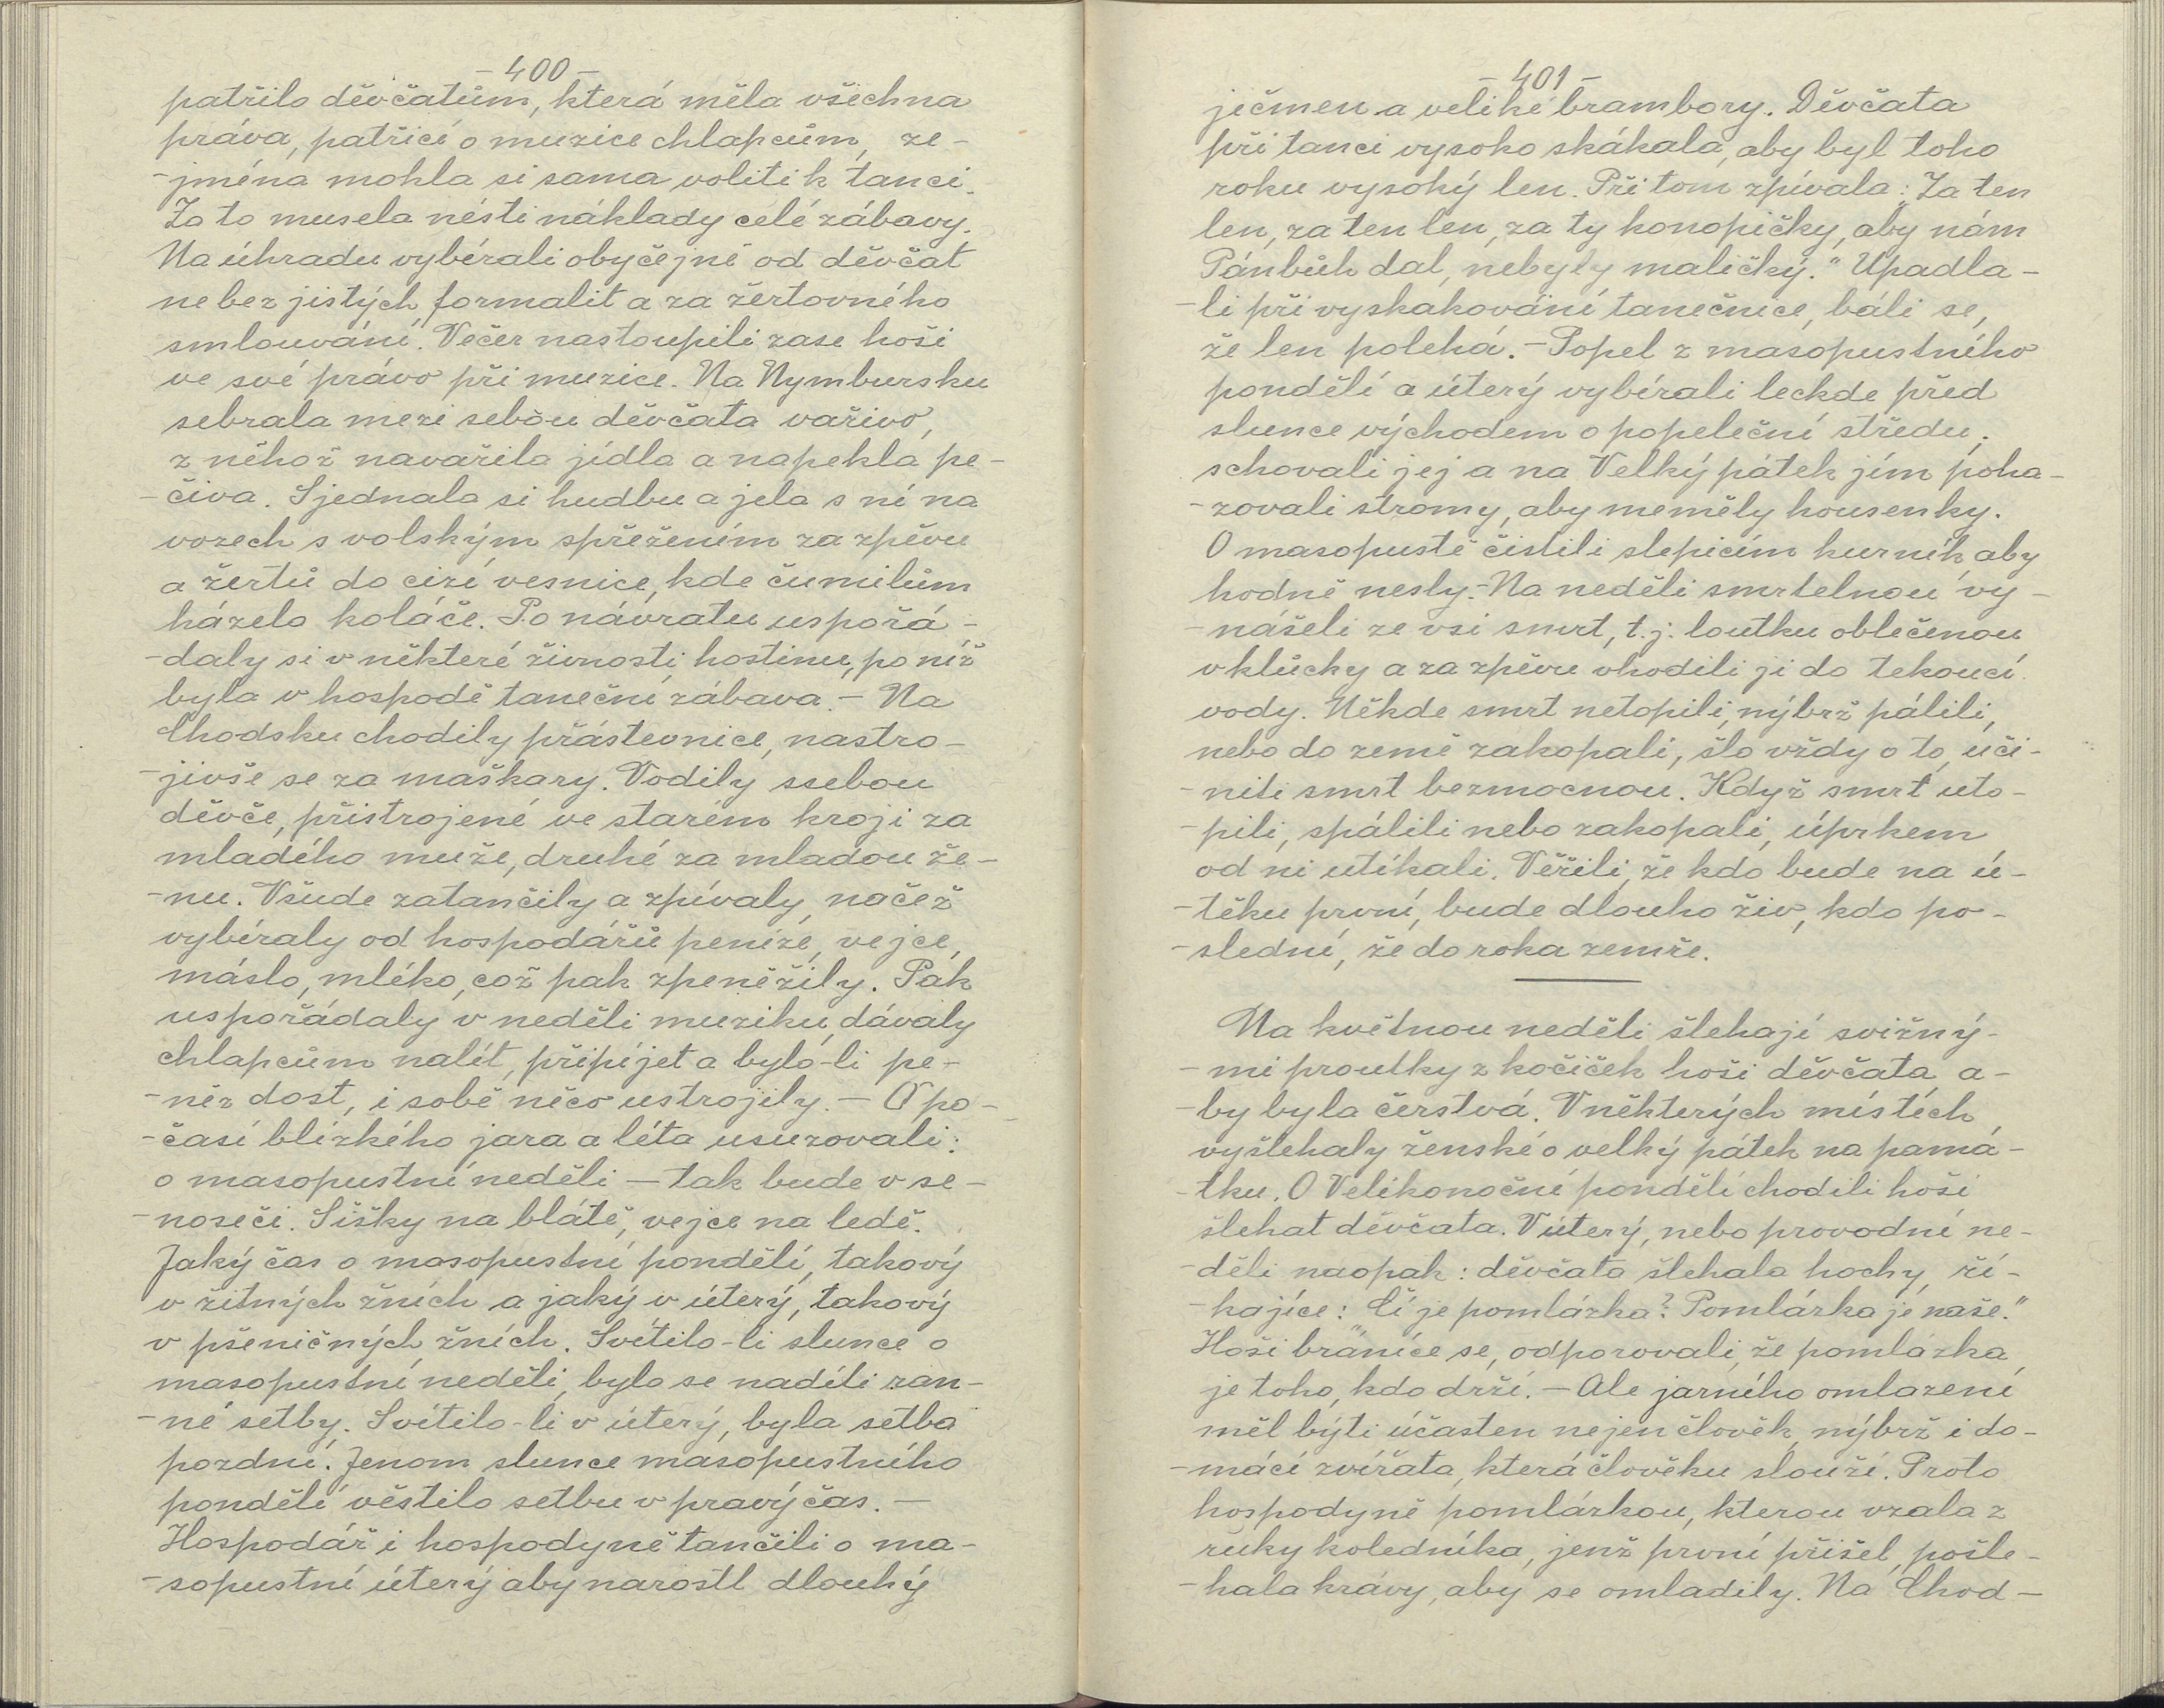 - 400 -
patřilo děvčatům, která měla všechna
práva, patřící o muzice chlapcům, ze-
-jména mohla si sama voliti k tanci.
Za to musela nésti náklady celé zábavy.
Na úhradu vybírali obyčejně od děvčat
ne bez jistých formalit a za žertovného
smlouvání. Večer nastoupili zase hoši
ve své právo při muzice. Na Nymbursku
sebrala mezi sebou děvčata vařivo,
z něhož navařila jídla a napekla pe-
-čiva. Sjednala si hudbu a jela s ní na
vozech s volským spřežením za zpěvu
a žertů do cizí vesnice, kde čumilům
házela koláče. Po návratu uspořá-
-daly si v některé živnosti hostinu, po níž
byla v hospodě taneční zábava. - Na
Chodsku chodily přástevnice, nastro-
-jivše se za maškary. Vodily ssebou
děvče, přistrojené ve starém kroji za
mladého muže, druhé za mladou že-
-nu. Všude zatančily a zpívaly, načež
vybíraly od hospodářů peníze, vejce,
máslo, mléko, což pak zpeněžily. Pak
uspořádaly v neděli muziku, dávaly
chlapcům nalít, připíjet a bylo-li pe-
-něz dost, i sobě něco ustrojily. - O po-
-časí blízkého jara a léta usuzovali:
o masopustní neděli - tak bude v se-
-noseči. Šišky na blátě, vejce na ledě.
Jaký čas o masopustní pondělí, takový
v žitných žních a jaký v úterý, takový
v pšeničných žních. Svítilo-li slunce o
masopustní neděli, bylo se nadíti ran-
-né setby. Svítilo-li v úterý, byla setba
pozdní. Jenom slunce masopustního
pondělí věstilo setbu v pravý čas. -
Hospodář i hospodyně tančili o ma-
-sopustní úterý aby narostl dlouhý
- 401 -
ječmen a veliké brambory. Děvčata
při tanci vysoko skákala, aby byl toho
roku vysoký len. Při tom zpívala: „Za ten
len, za ten len, za ty konopičky, aby nám
Pánbůh dal, nebyly maličký.“ Upadla-
-li při vyskakování tanečnice, báli se,
že len polehá. - Popel z masopustního
pondělí a úterý vybírali leckde před
slunce východem o popeleční středu,
schovali jej a na Velký pátek jím poha-
-zovali stromy, aby neměly housenky.
O masopustě čistili slepicím kurník, aby
hodně nesly. - Na neděli smrtelnou vy-
-nášeli ze vsi smrt, t.j. loutku oblečenou
v klůcky a za zpěvu vhodili ji do tekoucí
vody. Někde smrt netopili, nýbrž pálili,
nebo do země zakopali, šlo vždy o to, uči-
-niti smrt bezmocnou. Když smrt uto-
-pili, spálili nebo zakopali, úprkem
od ní utíkali. Věřili, že kdo bude na ú-
-těku první, bude dlouho živ, kdo po-
-slední, že do roka zemře.
Na květnou neděli šlehají svižný-
-mi proutky z kočiček hoši děvčata, a-
-by byla čerstvá. V některých místech
vyšlehaly ženské o velký pátek na pamá-
-tku. O Velikonoční pondělí chodili hoši
šlehat děvčata. V úterý, nebo provodní ne-
-děli naopak: děvčata šlehala hochy, ří-
-kajíce: „Čí je pomlázka? Pomlázka je naše.“
Hoši bráníce se, odporovali, že pomlázka
je toho, kdo drží. - Ale jarního omlazení
měl býti účasten nejen člověk, nýbrž i do-
-mácí zvířata, která člověku slouží. Proto
hospodyně pomlázkou, kterou vzala z
ruky koledníka, jenž první přišel, pošle-
-hala krávy, aby se omladily. Na Chod-